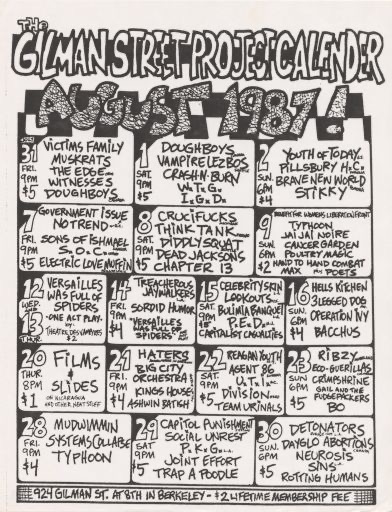 THE
GILMAN STREET PROJECT CALENDER
AUGUST 1987!
31
FRI.
9PM
$5
VICTIMS FAMILY
MUSKRATS
THE EDGE
WITNESSES
DOUGHBOYS
1
SAT.
9PM
$5
DOUGHBOYS
VAMPIRE LEZBOS
CRASH-N-BURN
W.T.G.
I.G.D.
2
SUN.
6PM
$4
YOUTH OF TODAY
PILLSBURY H.C.
BRAVE NEW WORLD
STIKKY
7
FRI.
9PM
$5
GOVERNMENT ISSUE
NO TREND
SONS OF ISHMAEL
S.O.C.
ELECTRIC LOVE MUFFIN
8
SAT.
9PM
$5
CRUCIFUCKS
THINK TANK
DIDDLY SQUAT
DEAD JACKSONS
CHAPTER 13
9
SUN.
6PM
$2
BENEFIT FOR WOMENS LIBERATION FRONT
TYPHOON
JAI JAI NOIRE
CANCER GARDEN
POULTRY MAGIC
HAND TO HAND COMBAT
MAX PLUS POETS
12
WED. AND
13
THUR.
VERSAILLES
WAS FULL OF
SPIDERS
-ONE ACT PLAY-
BY:
THEATRE DES VAMPIRES
$2
14
FRI.
9PM
$4
TREACHEROUS
JAYWALKERS
SORDID HUMOR
VERSAILLES
WAS FULL OF
SPIDERS
15
SAT.
9PM
$5
CELEBRITY SKIN
LOOKOUTS
BULIMIA BANQUET
P.E.D.
CAPITALIST CASUALTIES
16
SUN.
6PM
$4
HELLS KITCHEN
3 LEGGED DOG
OPERATION IVY
BACCHUS
20
THUR.
8PM
$1
FILMS
&
SLIDES
ON NICARAGUA
AND OTHER NEAT STUFF
21
FRI.
9PM
$4
HATERS
BIG CITY
ORCHESTRA
KINGS HOUSE
ASHWIN BATISH
22
SAT.
9PM
$5
REAGAN YOUTH
AGENT 86
U.T.I.
DIVISION
TEAM URINALS
23
SUN.
6PM
$4
RIBZY
ECO-GUERILLAS
CRIMPSHRINE
GAIL AND THE
FUDGEPACKERS
BO
28
FRI.
9PM
$4
MUDWIMMIN
SYSTEMS COLLAPSE
TYPHOON
29
SAT.
9PM
$4
CAPITOL PUNISHMENT
SOCIAL UNREST
P.K.G.
JOINT EFFORT
TRAP A POODLE
30
SUN.
6PM
$5
DETONATORS
DAYGLO ABORTIONS
NEUROSIS
SINS
ROTTING HUMANS
924 GILMAN ST. AT 8TH IN BERKELEY - $2 LIFETIME MEMBERSHIP FEE